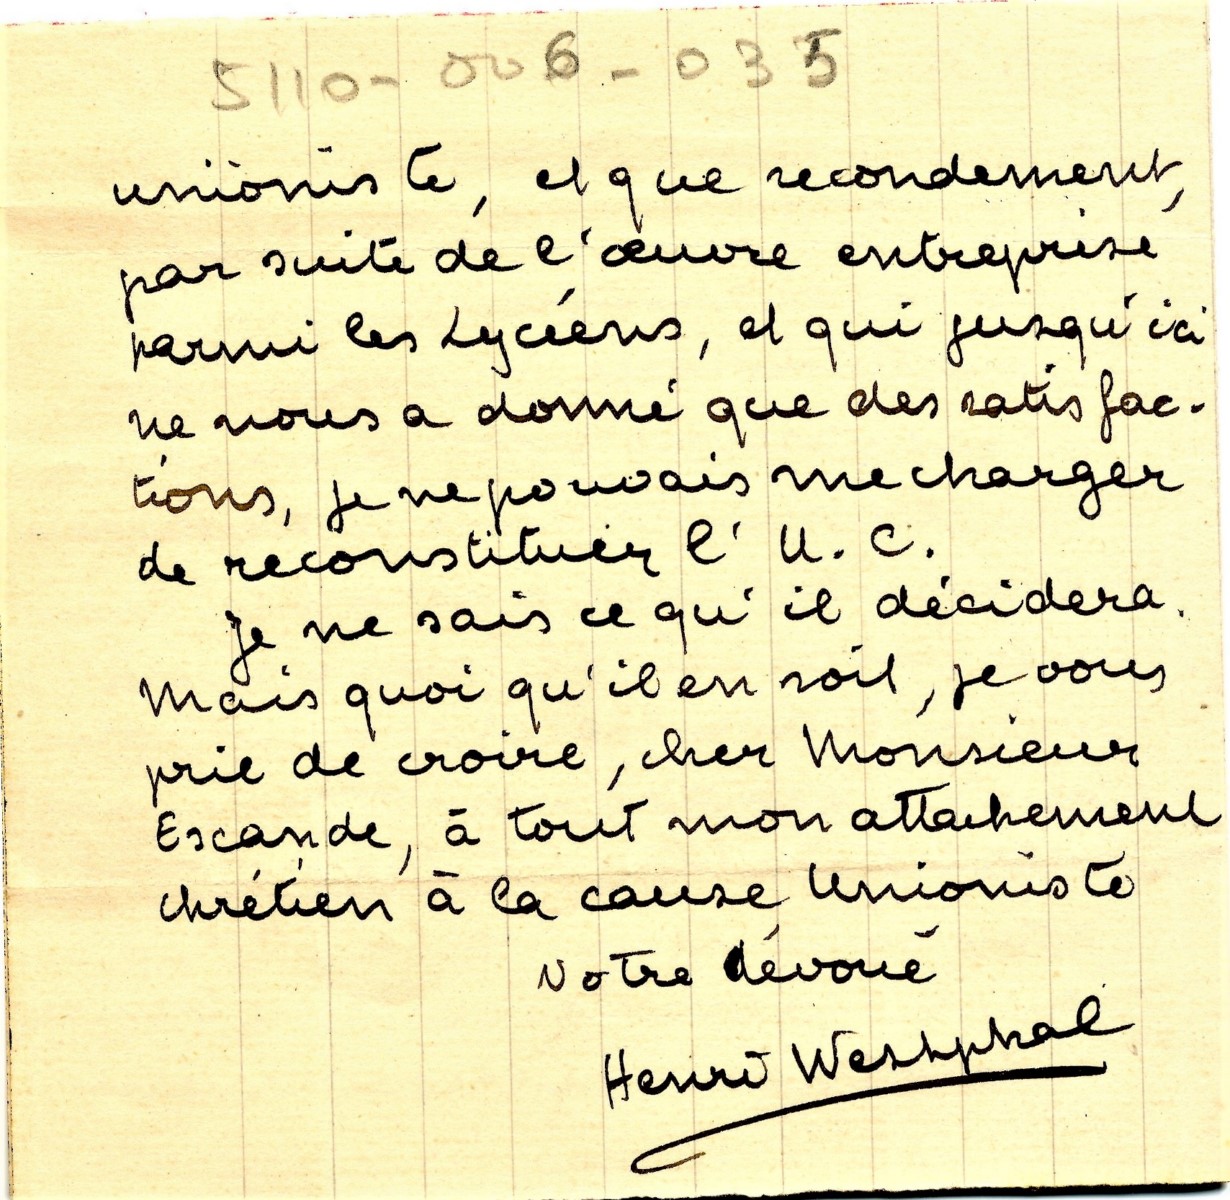 5110-006-035
unioniste, et que secondement,
par suite de l'œuvre entreprise
parmi les Lycéens, et qui jusqu'ici
ne nous a donné que des satisfac-
tions, je ne pouvais me charger
de reconstituer l'U.C.
Je ne sais ce qu'il décidera.
Mais quoi qu'il en soit, je vous
prie de croire, cher Monsieur
Escande, à tout mon attachement
chrétien à la cause Unioniste
Votre dévoué
Henri Westphal